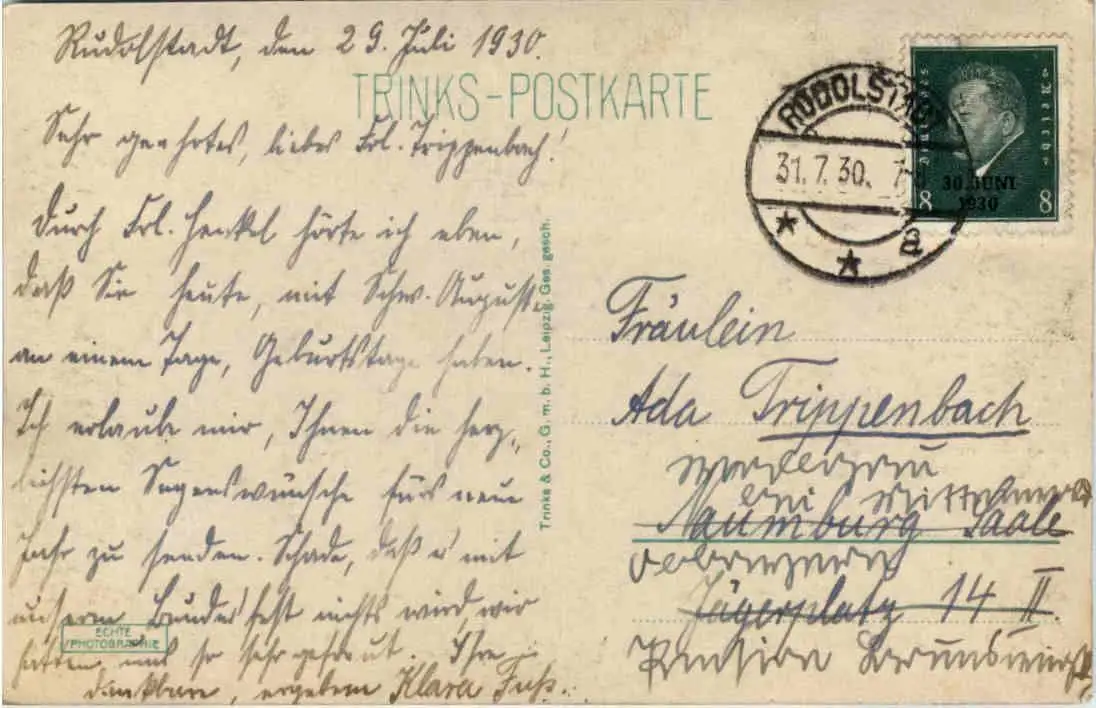 Rudolstadt, den 29. Juli 1930.
TRINKS-POSTKARTE
Sehr geehrtes, liebes Frl. Trippenbach!
Durch Frl. Henkel hörte ich eben,
daß Sie heute, mit Schw. Auguste
an einem Tage, Geburtstag haben.
Ich erlaube mir, Ihnen die herz-
lichsten Segenswünsche fürs neue
Jahr zu senden. Schade, daß es mit
unserm Bundesfest nichts wird, wir
hatten uns so sehr gefreut. Ihre
dankbare, ergebene Klara Fuß.
ECHTE
PHOTOGRAPHIE
Trinks & Co., G. m. b. H., Leipzig. Ges. gesch.
RUDOLSTADT
31.7.30.
a
Deutsches Reich
30. JUNI
1930
8 8
Fräulein
Ada Trippenbach
bei
Naumburg Saale
Jägerplatz 14 II.
Pension